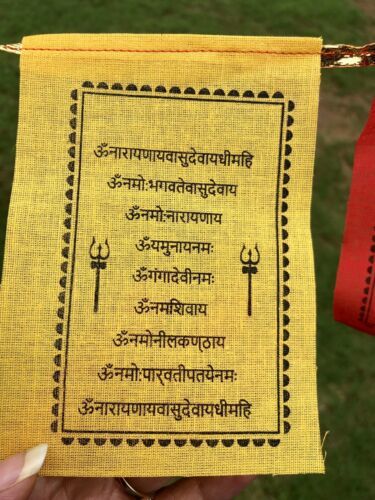 ॐनारायणायवासुदेवायधीमहि
ॐनमोःभगवतेवासुदेवाय
ॐनमोःनारायणाय
ॐयमुनायनमः
ॐगंगादेवीनमः
ॐनमशिवाय
ॐनमोनीलकण्ठाय
ॐनमोःपार्वतीपतयेनमः
ॐनारायणायवासुदेवायधीमहि